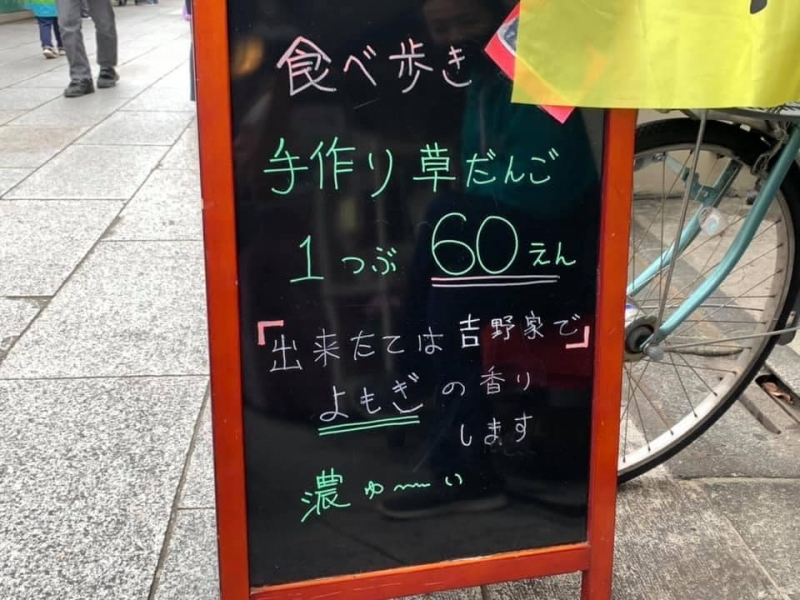 食べ歩き
手作り草だんご
1つぶ 60えん
「出来たては吉野家で」
よもぎの香り
します
濃ゅ〜い